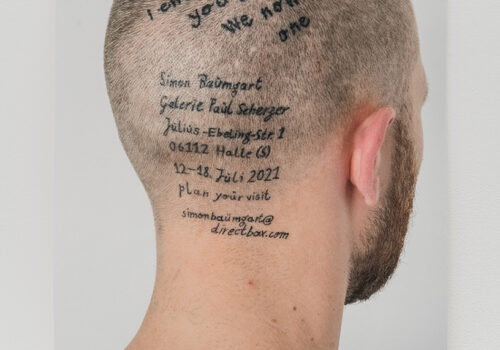 you
We now
one
Simon Baumgart
Galerie Paul Scherzer
Julius-Ebeling-Str. 1
06112 Halle (S)
12–18. Juli 2021
plan your visit
simonbaumgart@
directbox.com